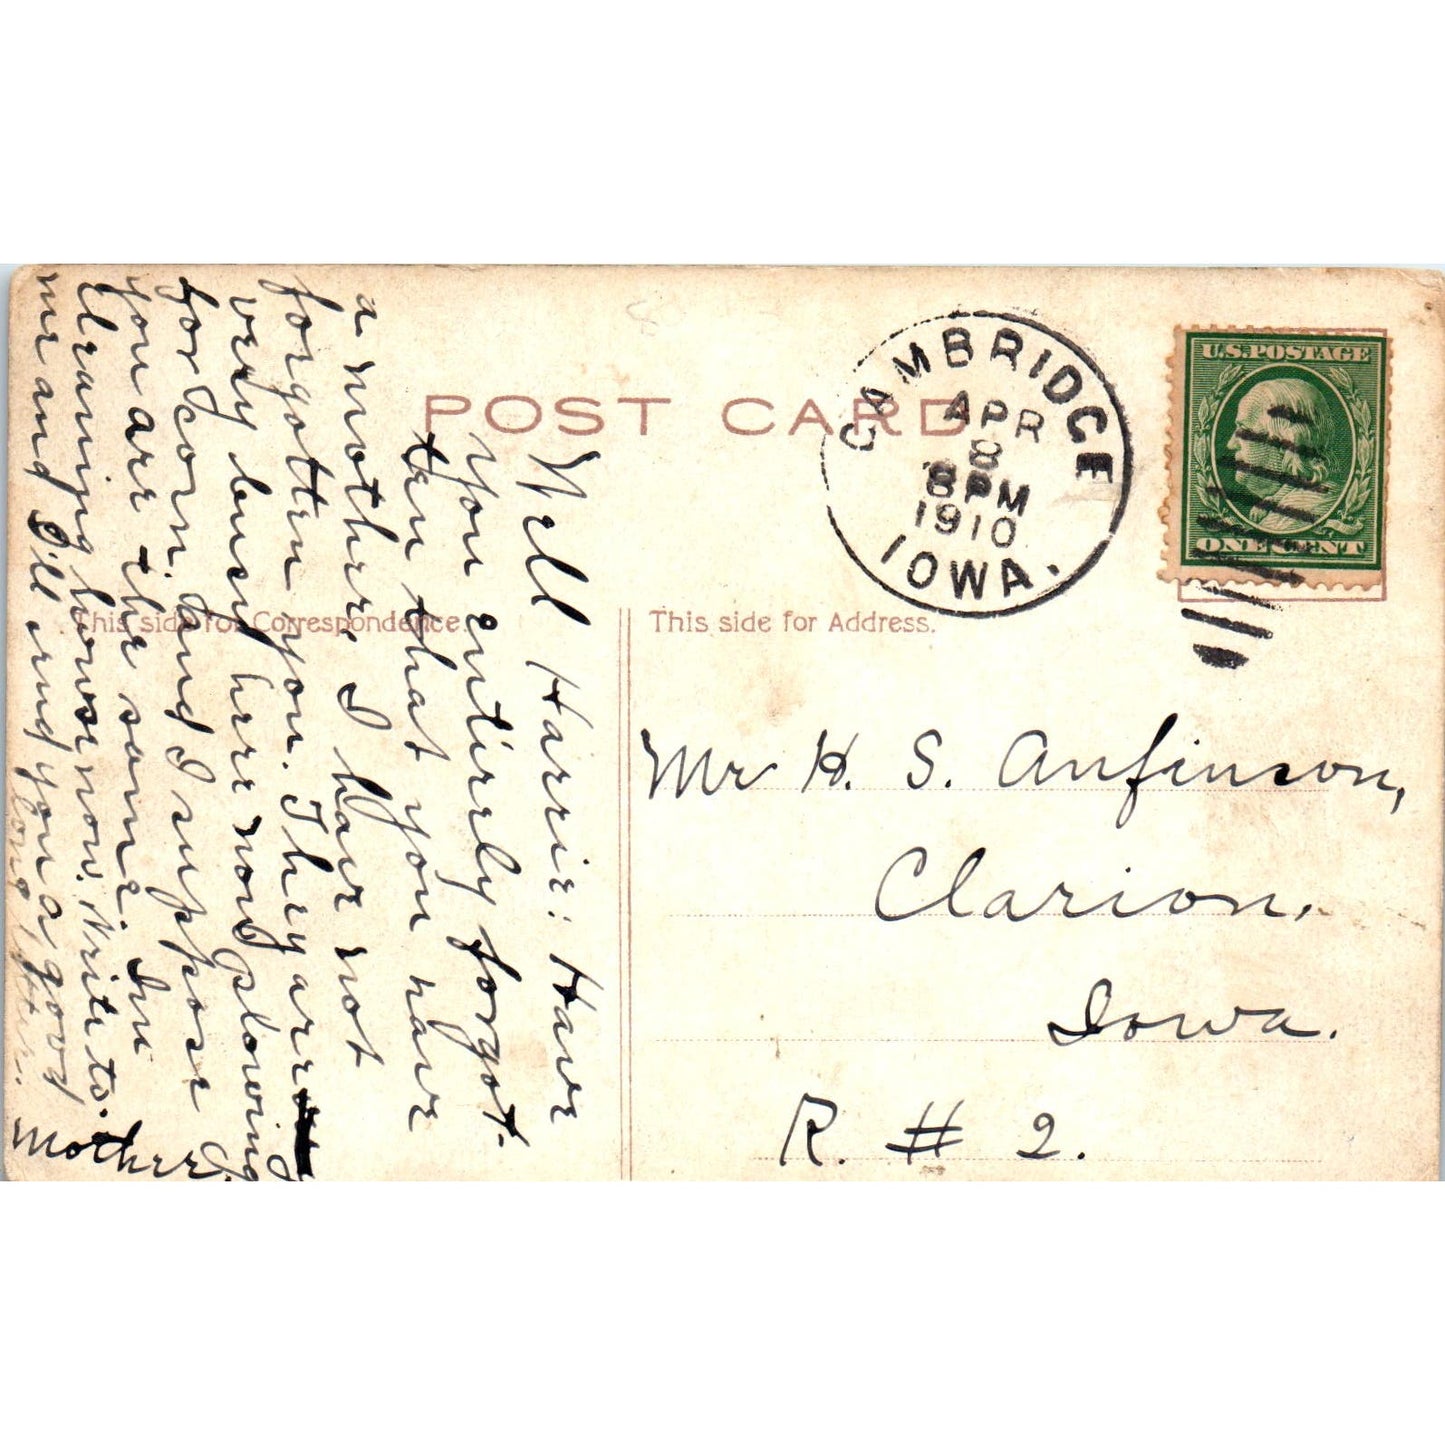 POST CARD
CAMBRIDGE
APR
8
8 PM
1910
IOWA.
U.S. POSTAGE
ONE CENT
This side for Correspondence.
This side for Address.
Mr H. S. Anfinson,
Clarion,
Iowa.
R. # 2.
Well Harrie: Have
you entirely forgot-
ten that you have
a mother, I have not
forgotten you. They are
very busy here now plowing
for corn. and I suppose
you are the same. Im
cleaning house now. Write to
me and I'll send you a good
long letter.
Mother.